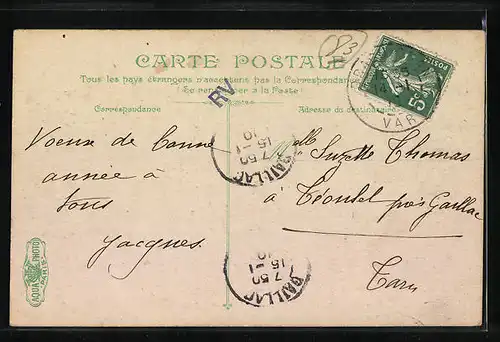 83
CARTE POSTALE
Tous les pays étrangers n'acceptent pas la Correspondance
(Se renseigner à la Poste)
RV
Correspondance
Adresse du destinataire
POSTES
5
VAR
Voeux de bonne
année à
tous
Jacques
Mlle Suzette Thomas
à près Gaillac
Tarn
GAILLAC
7 50
15 -1
10
GAILLAC
7 50
15 -1
10
AQUA PHOTO
PARIS